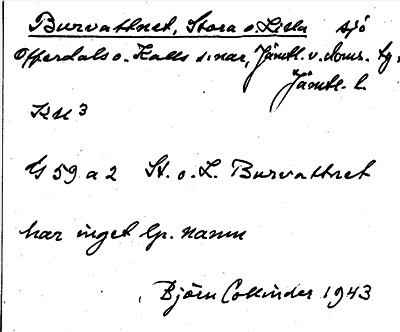 Burvattnet, Stora o. Lilla sjö
Offerdals o. Kalls s:nar, Jämtl. v. doms. tg,
Jämtl. l.
KU3
G 59 a 2 St. o. L. Burvattnet
har inget lp. namn
Björn Collinder 1943